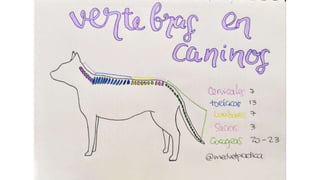 vertebras en
caninos
Cervicales 7
torácicas 13
Lumbares 7
Sacras 3
Coxigeas 20-23
@medvetpractica